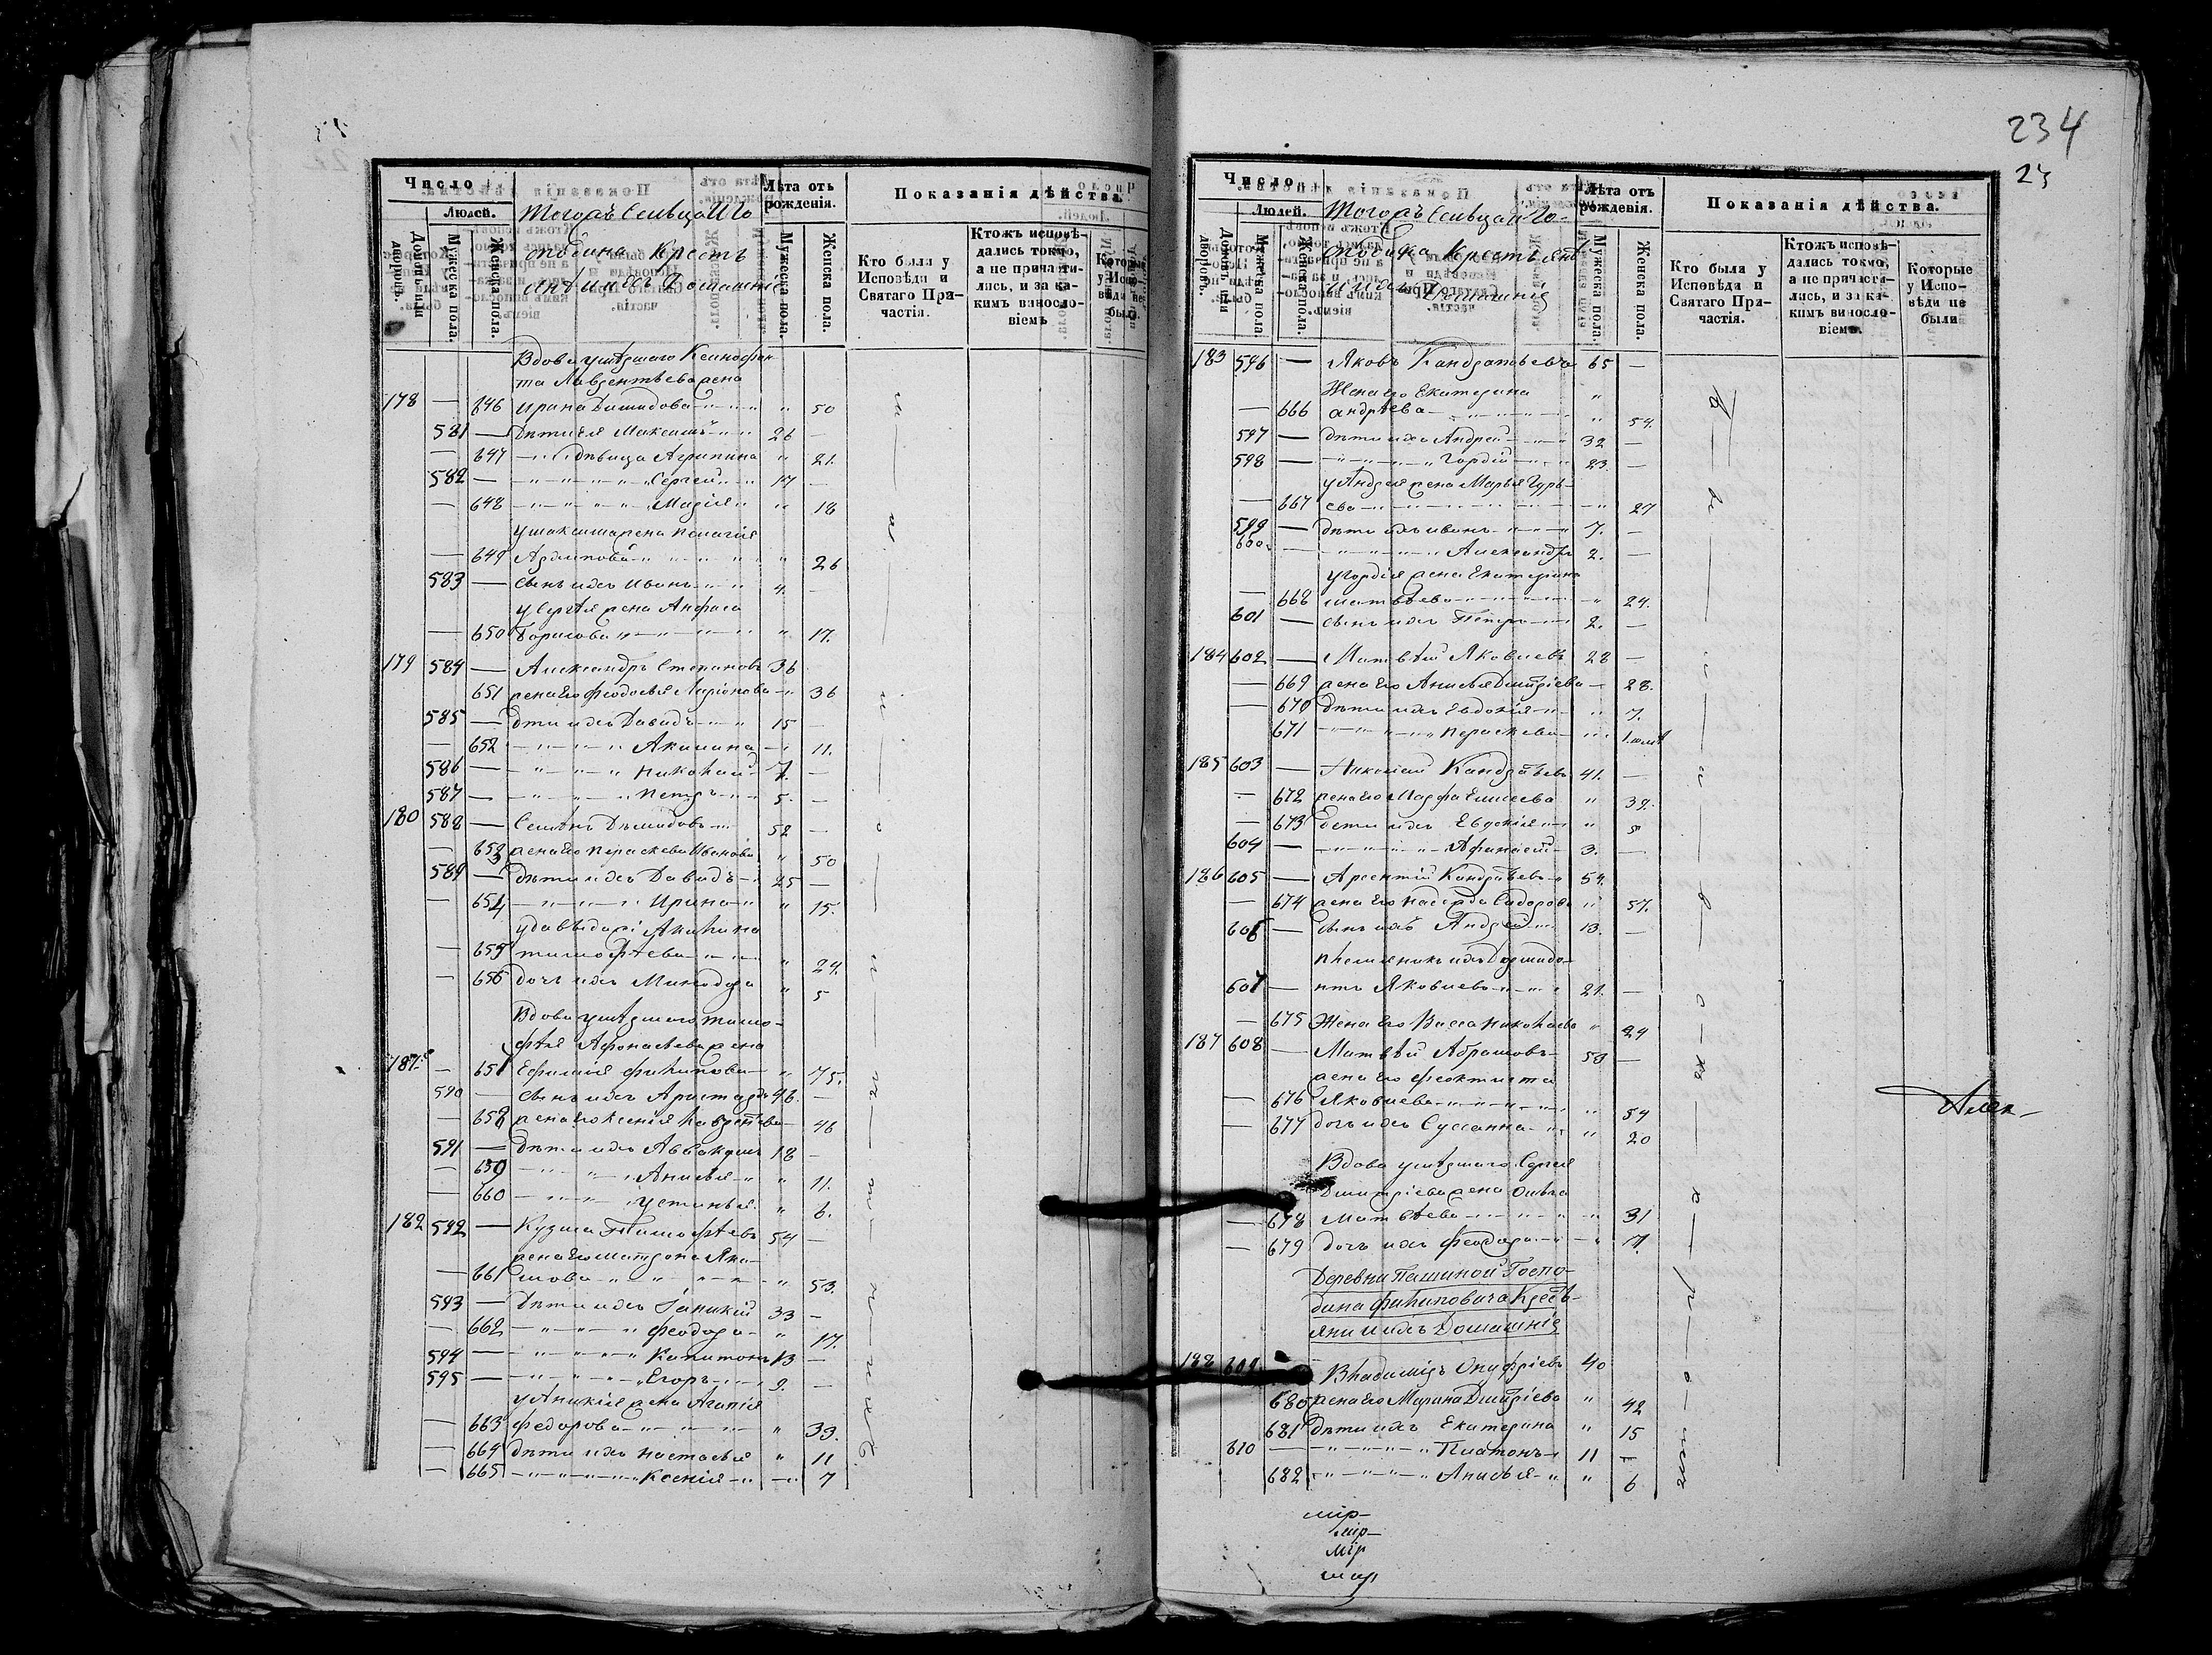 Число
Людей.
Домъ или дворовъ.
Мужеска пола.
Женска пола.
Тогожъ Сельца и Го-
сподина Крестъ-
яне и ихъ Домашніе
Лѣта отъ рожденія.
Мужеска пола.
Женска пола.
Показанія дѣйства.
Кто были у Исповѣди и Святаго Причастія.
Ктожъ исповѣдались токмо, а не причастились, и за какимъ винословіемъ
Которые у Исповѣди не были.
Вдова умершаго Ксенофон-
та Лаврентьева жена
178 — 646 Ирина Димидова " 50
581 — Дѣти ея Максимъ 26 —
— 647 дѣвица Агрипина " 21.
582 — Сергей 17 —
— 648 Марія " 18
у Максима жена Пелагія
— 649 Архипова " 26
583 — Сынъ ихъ Иванъ 4. —
у Сергѣя жена Анфиса
— 650 Борисова " 17.
179 584 — Александръ Степановъ 36
651 жена его Феодосья Ларіонова " 36
585 — дѣти ихъ Давидъ 15 —
— 652 Акилина " 11.
586 — Николай 7. —
587 — Петръ 5. —
180 588 — Семенъ Дѣмидовъ 52 —
— 653 жена его Параскева Иванова " 50
589 — Дѣти ихъ Давидъ 25 —
— 654 Ирина " 15.
у Давыда жена Акилина
— 655 Тимофѣева " 24.
— 656 дочь ихъ Минодора " 5
Вдова умершаго Тимо-
фѣя Афонасьева жена
181. — 657 Ефимія Филипова " 75.
590 — Сынъ ихъ Аристархъ 46. —
— 658 жена его Ксенія Лаврентьева — 46
591 — Дѣти ихъ Аввакумъ 18 —
— 659 Анисья " 11.
— 660 Устинья " 6.
182 592 — Кузма Тимофѣевъ 54 —
жена его Матрона Яки-
— 661 мова " 53.
593 — Дѣти ихъ Іаникій 33 —
— 662 Феодора " 17.
594 — Капитонъ 13 —
595 — Егоръ 9. —
у Аникія жена Агапія
— 663 Федорова " 33.
— 664 дѣти ихъ Настасья " 11
— 665 Ксенія " 7
234
23
Число
Людей.
Домъ или дворовъ.
Мужеска пола.
Женска пола.
Тогожъ Сельца и Го-
сподина Крестьяне
и ихъ Домашніе
Лѣта отъ рожденія.
Мужеска пола.
Женска пола.
Показанія дѣйства.
Кто были у Исповѣди и Святаго Причастія.
Ктожъ исповѣдались токмо, а не причастились, и за какимъ винословіемъ.
Которые у Исповѣди не были
183 596 — Яковъ Кандратьевъ 65 —
Жена его Екатерина "
— 666 Андрѣева " 54.
597 — дѣти ихъ Андрей 32 —
598 — Гордій 23. —
у Андрея жена Марья Гурь-
— 667 ева " 27
599 — дѣти ихъ Иванъ 7. —
600. — Александръ 2. —
у Гордія жена Екатерина
— 668 Матвѣева " 24.
601 — Сынъ ихъ Петръ 2. —
184 602 — Матвѣй Яковлевъ 28 —
— 669 жена его Анисья Дмитріева — 28.
— 670 дѣти ихъ Евдокія " 7.
671 Параскева "
185 603 — Николай Кандратьевъ 41. —
— 672 жена его Марфа Елисеева " 39.
— 673 дети ихъ Евдокія " 5
604 — Афанасій 3. —
186 605 — Арсентій Кандратьевъ 54.
— 674 жена его Надежда Сидорова " 57.
606 — Сынъ ихъ Андрей 13. —
племяникъ ихъ Дормидо-
607 — нтъ Яковлевъ 21. —
— 675 Жена его Васса Николаева " 24
187 608 — Матвѣй Абрамовъ 53 —
жена его Феоктиста
— 676 Яковлева " 54
— 677 дочь ихъ Сусанна " 20
Вдова умершаго Сергея
Дмитріева жена Ольга
— 678 Матвѣева " 31
— 679 дочь ихъ Феодора " 7.
Деревни Пашиной Госпо-
дина Филиповича Кресть-
яни и ихъ Домашніе
188 609. Владимиръ Онуфріевъ 40
680 жена его Марина Дмитріева " 42
681 дѣти ихъ Екатерина " 15
610 — Платонъ 11 —
682 Анисья " 6
Алек-
мір-
мір-
мір